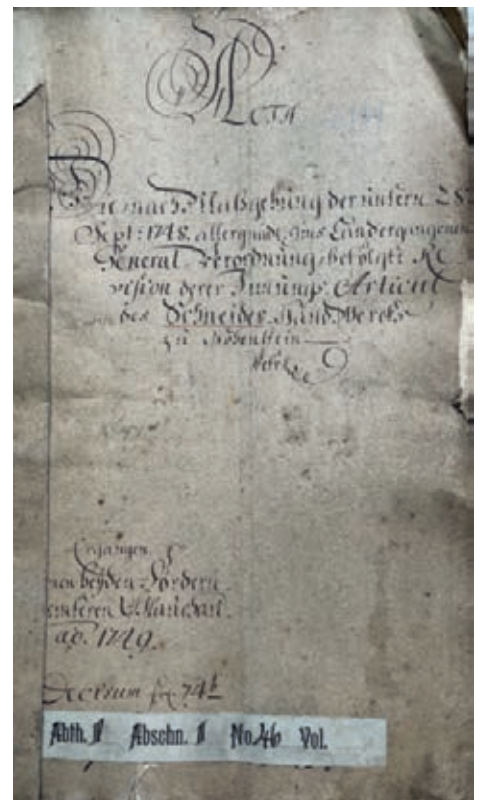 ACTA
Die nach Maßgebung der unterm 28
Sept: 1748. allergnädt: ins Land ergangenen
General-Verordnung, befolgte Re
vision derer Innungs-Articul
des Schneider-Handwercks
zu Hohenstein
betr.
Ergangen
beyden Fördern
ao. 1749.
74
Abth. I Abschn. I No. 46 Vol.